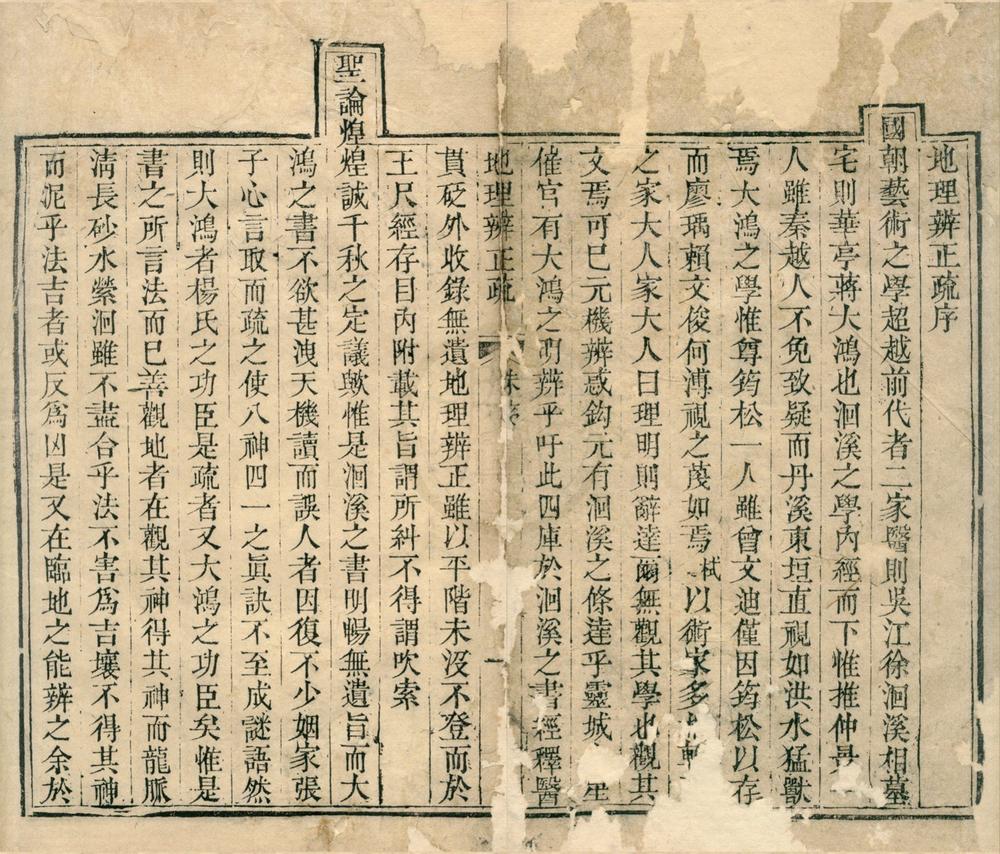 地理辨正疏序
國朝藝術之學超越前代者二家醫則吳江徐洄溪相墓
宅則華亭蔣大鴻也洄溪之學內經而下惟推仲景
人雖秦越人不免致疑而丹溪東垣直視如洪水猛獸
焉大鴻之學惟尊筠松一人雖曾文迪僅因筠松以存
而廖瑀賴文俊何溥視之蔑如焉栻以術家多
之家大人家大人曰理明則辭達爾無觀其學也觀其
文焉可巳元機辨惑鈎元有洄溪之條達乎靈城
催官有大鴻之明辨乎吁此四庫於洄溪之書經釋醫
地理辨正疏 朱序 一
貫砭外收錄無遺地理辨正雖以平階未沒不登而於
王尺經存目內附載其旨謂所糾不得謂吹索
聖論煌煌誠千秋之定議歟惟是洄溪之書明暢無遺旨而大
鴻之書不欲甚洩天機讀而誤人者因復不少姻家張
子心言取而疏之使八神四一之眞訣不至成謎語然
則大鴻者楊氏之功臣是疏者又大鴻之功臣矣惟是
書之所言法而巳善觀地者在觀其神得其神而龍脈
淸長砂水縈洄雖不盡合乎法不害爲吉壤不得其神
而泥乎法吉者或反爲凶是又在臨地之能辨之余於